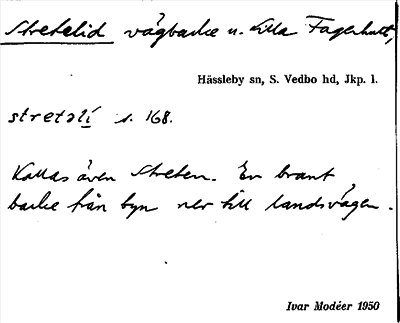 Stretelid vägbacke u. Lilla Fagerhult,
Hässleby sn, S. Vedbo hd, Jkp. l.
stretəlí s. 168.
Kallas även Streten. En brant
backe från byn ner till landsvägen.
Ivar Modéer 1950